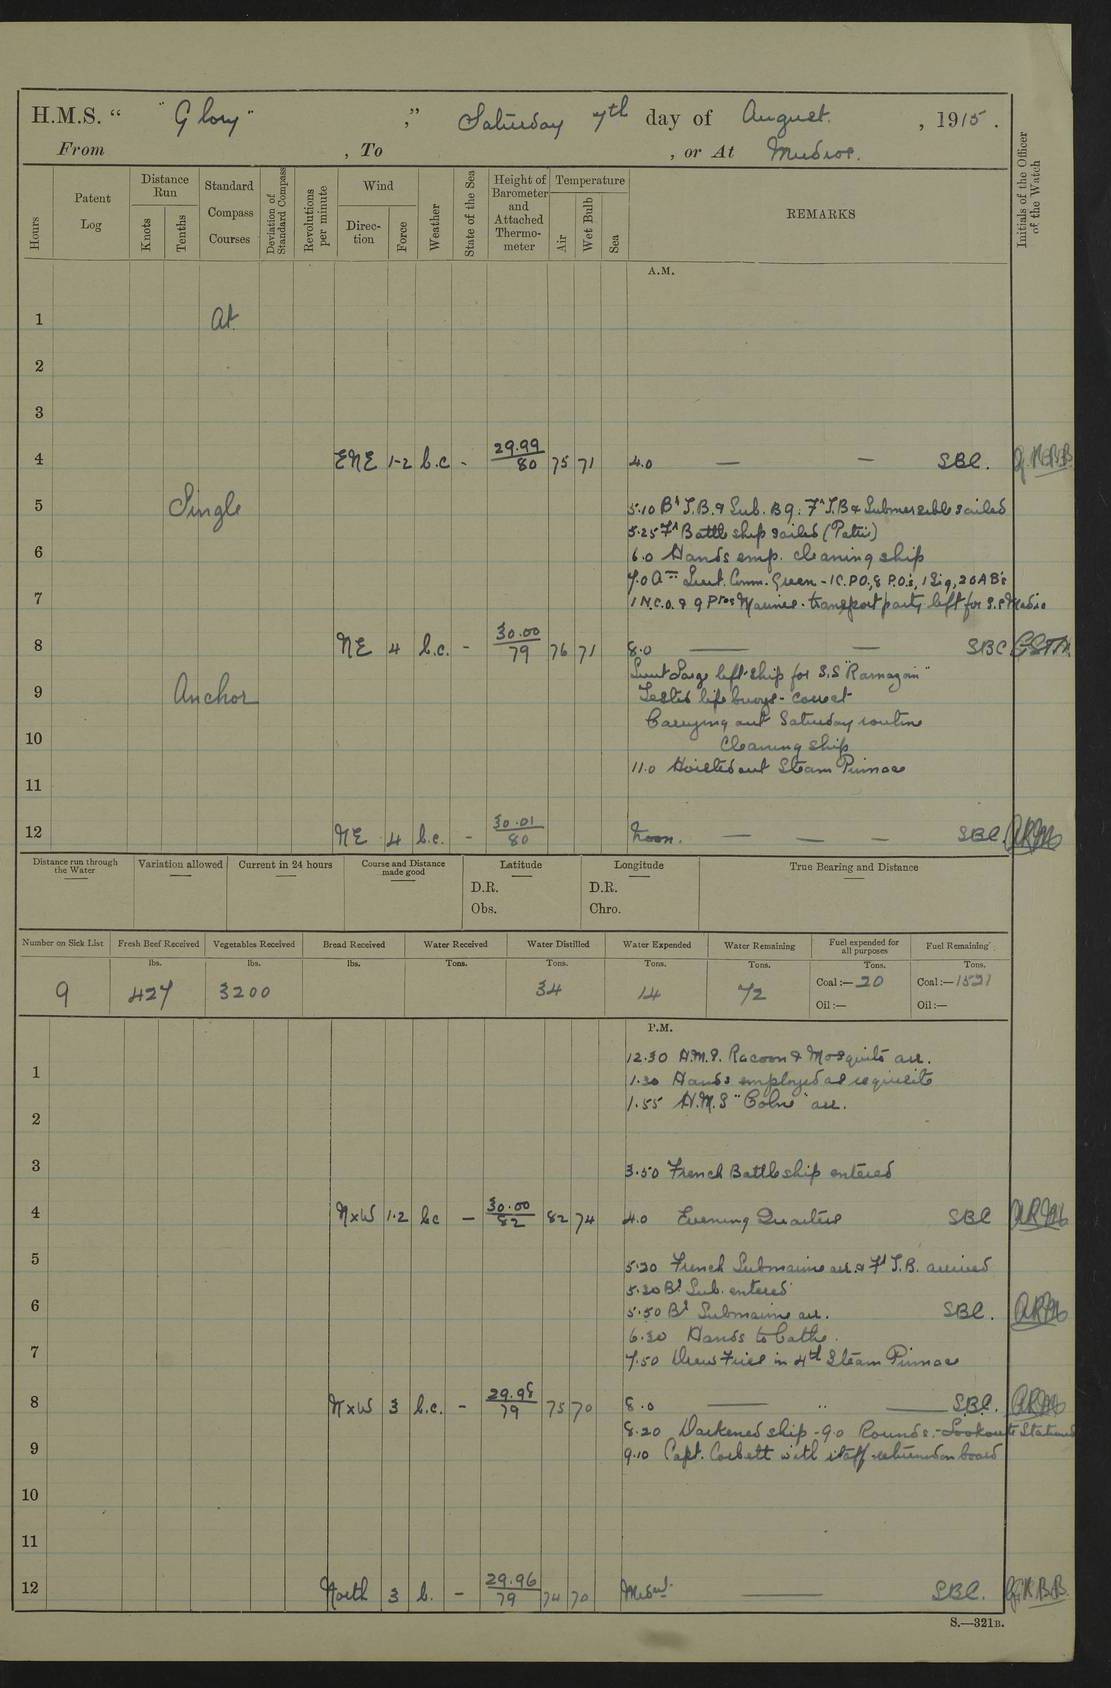 H.M.S. “ "Glory" ,” Saturday 7th day of August. , 1915.
From , To , or At Mudros.
Hours
Patent Log
Distance Run
Knots
Tenths
Standard Compass Courses
Deviation of Standard Compass
Revolutions per minute
Wind
Direction
Force
Weather
State of the Sea
Height of Barometer and Attached Thermometer
Temperature
Air
Wet Bulb
Sea
REMARKS
Initials of the Officer of the Watch
A.M.
1 At
2
3
4 ENE 1-2 b.c - 29.99/80 75 71 4.0 — — SBC.
5 Single 5.10 Bh T.B. & Sub. B9. Fh T.B & Submersible sailed
5.25 Fh Battleship sailed (Patrie)
6 6.0 Hands emp. cleaning ship
7.0 Lieut. Comm. Green - 1 C.P.O, 8 P.O's, 1 Sig, 20 AB's
7 1 N.C.O. & 9 Ptes Marines - transport party left for S.S
8 NE 4 b.c. - 30.00/79 76 71 8.0 — — SBC
Lieut left ship for S.S "Ramazan"
9 Anchor Tested life buoys - correct
Carrying out Saturday routine
10 Cleaning ship
11.0 Hoisted out Steam Pinnace
11
12 NE 4 b.c. - 30.01/80 Noon. — — — SBC.
Distance run through the Water
Variation allowed
Current in 24 hours
Course and Distance made good
Latitude
D.R.
Obs.
Longitude
D.R.
Chro.
True Bearing and Distance
Number on Sick List
Fresh Beef Received
Vegetables Received
Bread Received
Water Received
Water Distilled
Water Expended
Water Remaining
Fuel expended for all purposes
Fuel Remaining
lbs. lbs. lbs. Tons. Tons. Tons. Tons. Tons. Tons.
9 427 3200 34 14 72 Coal:— 20 Coal:— 1521
Oil:— Oil:—
P.M.
12.30 H.M.S. Racoon & Mosquito arr.
1 1.30 Hands employed as requisite
1.55 H.M.S "Colne" arr.
2
3 3.50 French Battleship entered
4 NxW 1.2 bc - 30.00/82 82 74 4.0 Evening Quarters SBC
5 5.20 French Submarine arr. & Fh T.B. arrived
5.20 Bh Sub. entered
6 5.50 Bh Submarine arr. SBC.
6.30 Hands to bathe.
7 7.50 Drew Fires in 4th Steam Pinnace
8 NxW 3 b.c. - 29.98/79 75 70 8.0 — " — SBC.
8.20 Darkened ship - 9.0 Rounds. - Lookouts Stationed
9 9.10 Capt. Corbett with staff returned on board
10
11
12 North 3 b. - 29.96/79 74 70 Midnt. — SBC.
S.—321B.